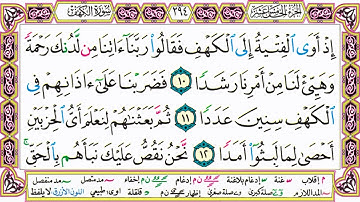 سورة الكهف ٢٩٤ الجزء الخامس عشر
إِذْ أَوَى ٱلْفِتْيَةُ إِلَى ٱلْكَهْفِ فَقَالُوا۟ رَبَّنَآ ءَاتِنَا مِن لَّدُنكَ رَحْمَةً
وَهَيِّئْ لَنَا مِنْ أَمْرِنَا رَشَدًا ١٠ فَضَرَبْنَا عَلَىٰٓ ءَاذَانِهِمْ فِى
ٱلْكَهْفِ سِنِينَ عَدَدًا ١١ ثُمَّ بَعَثْنَٰهُمْ لِنَعْلَمَ أَىُّ ٱلْحِزْبَيْنِ
أَحْصَىٰ لِمَا لَبِثُوٓا۟ أَمَدًا ١٢ نَّحْنُ نَقُصُّ عَلَيْكَ نَبَأَهُم بِٱلْحَقِّ ۚ